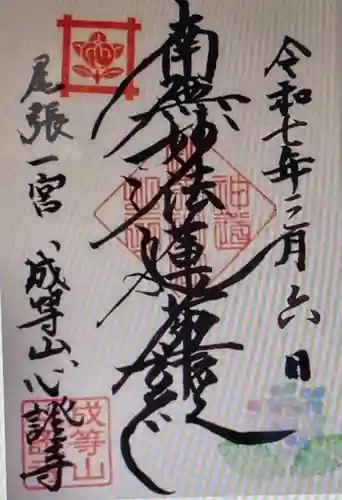 令和七年三月六日
南無妙法蓮華経
尾張一宮、成等山心證寺
成等山